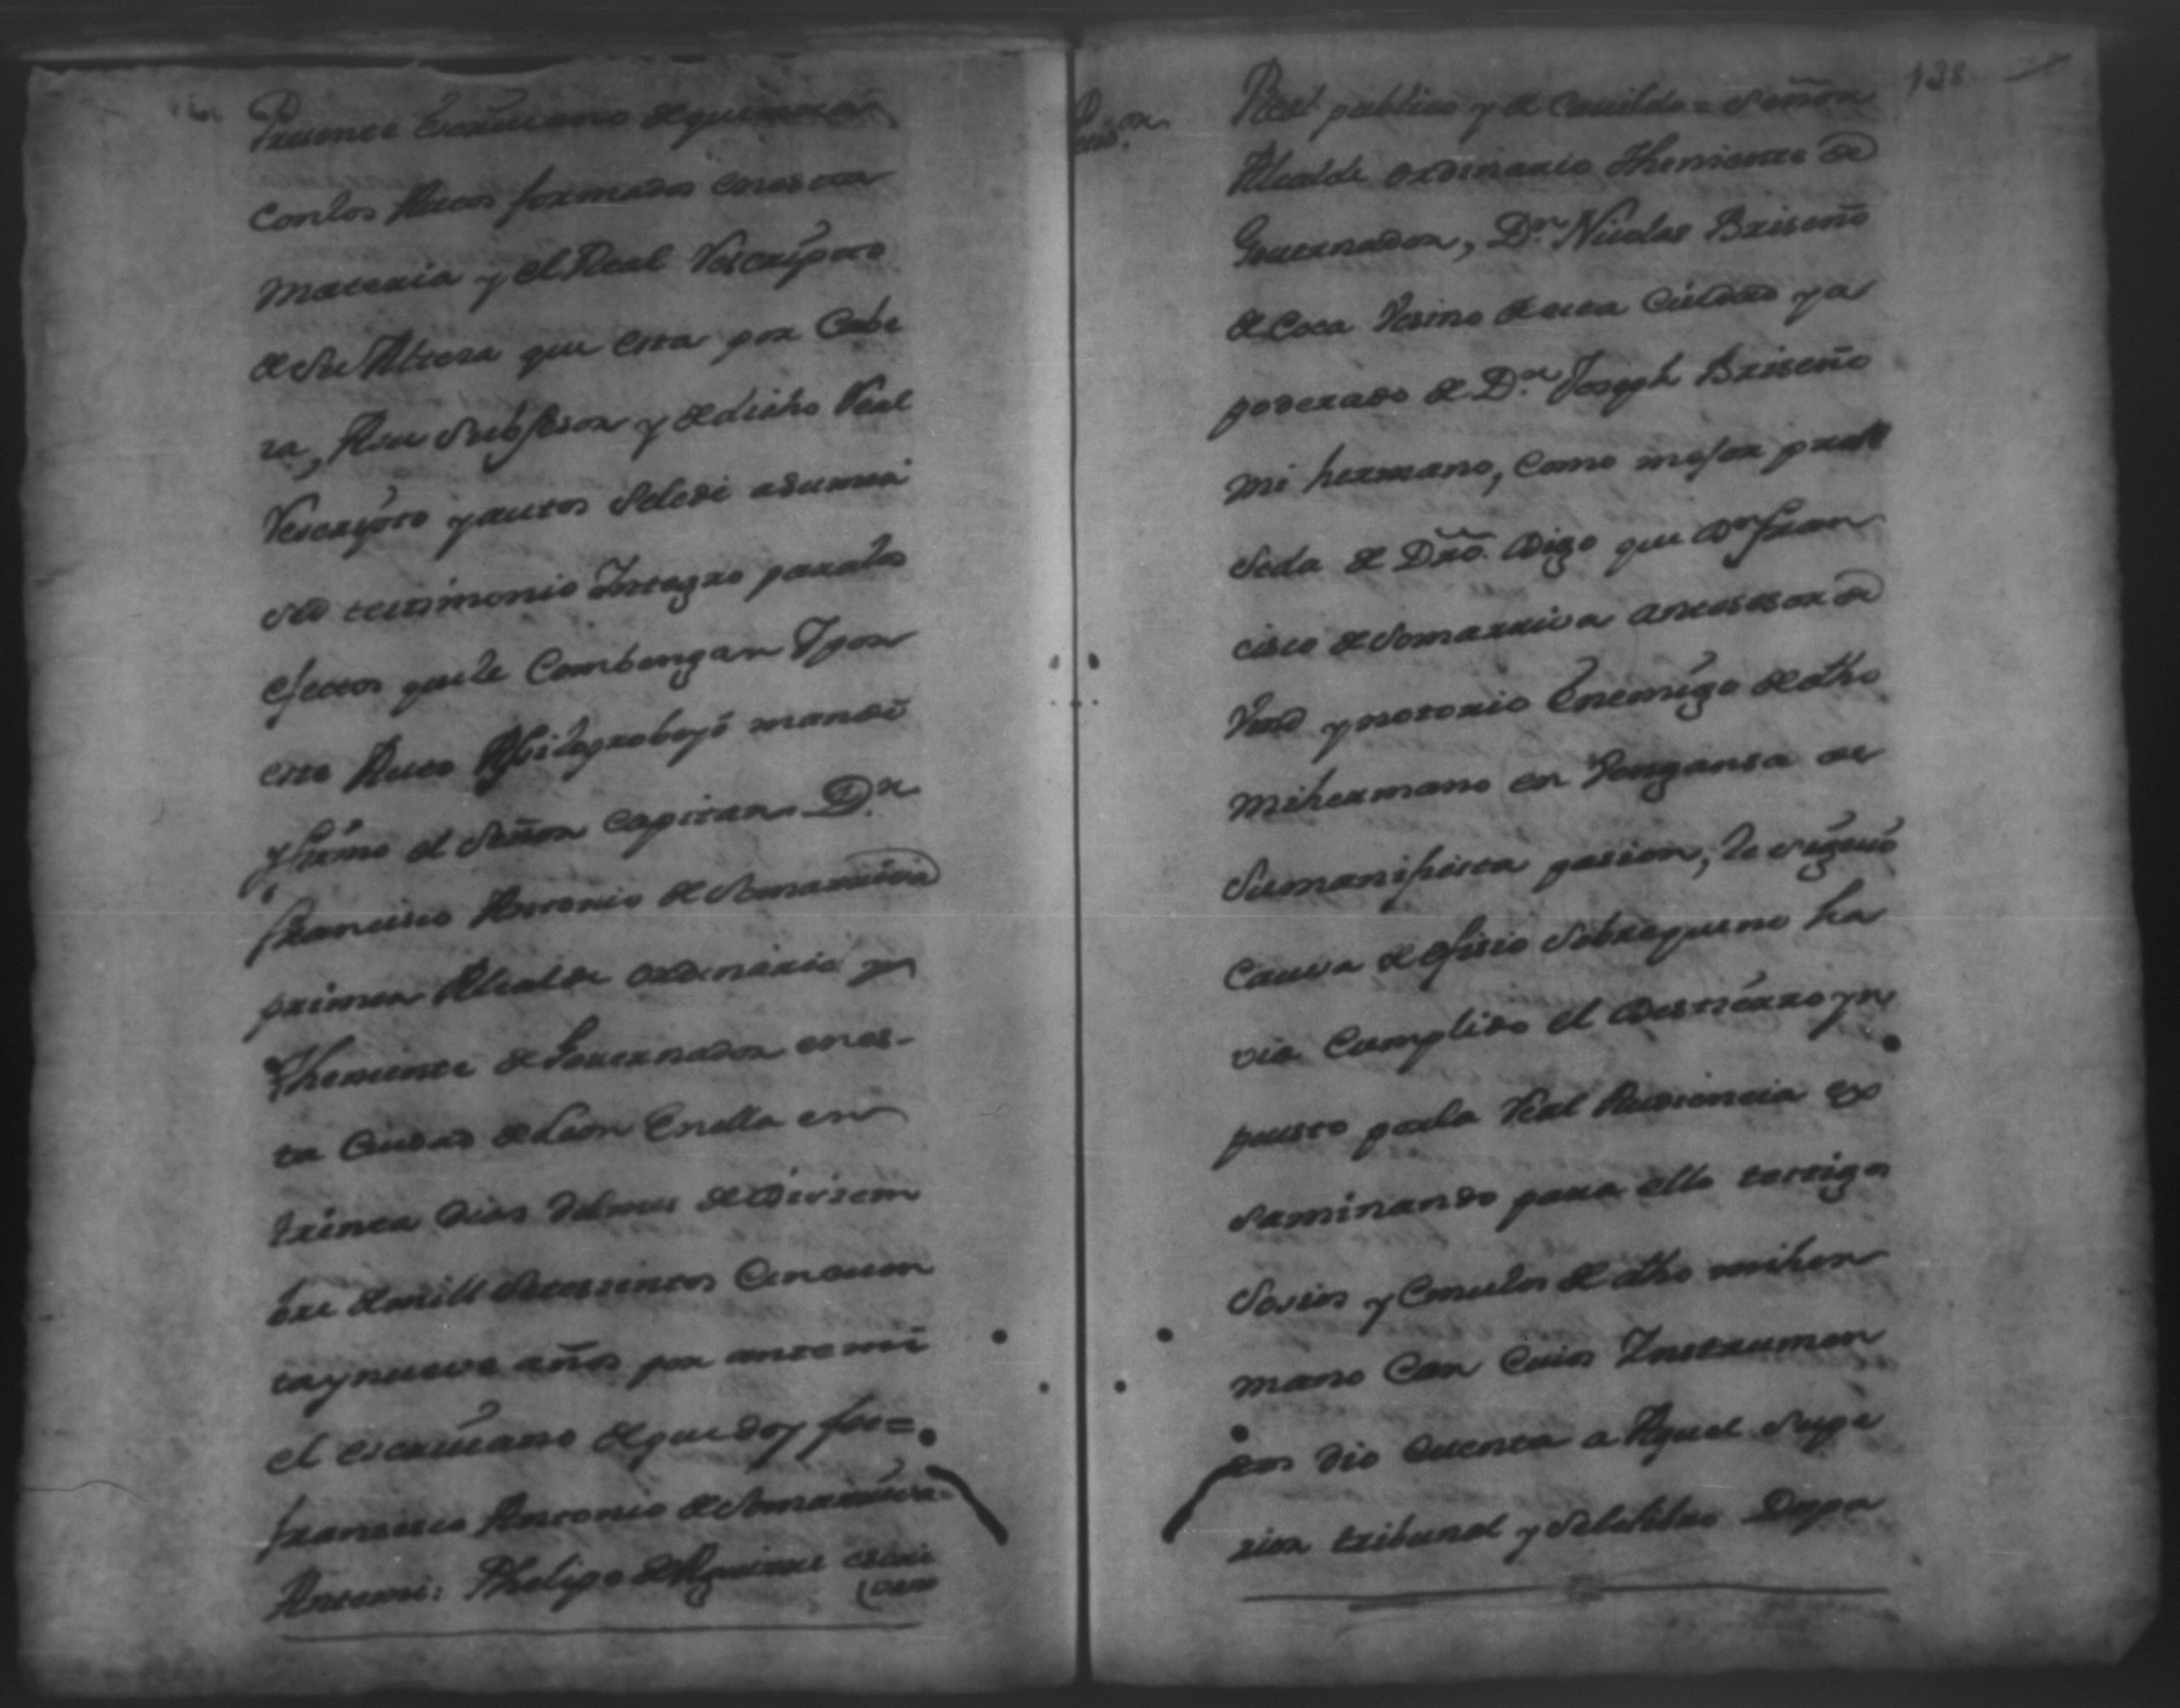 Presente Escriuano de quien
Con los Autos formados en esta
materia y el Real Rescripto
de Su Alteza que esta por Cabe
za, A su Subsesor y de dicho Real
Rescripto y autos Sele dé a su mrd
testimonio Integro para los
efectos que le Combengan Y por
este Auto Asi lo probeyó mandó
y firmó el Señor Capitan Dn.
francisco Antonio de Somarriva
primer Alcalde ordinario y
Theniente de Gouernador en es-
ta Ciudad de Leon En ella en
treinta dias del mes de Diziem
bre de mill Setezientos Cincuen
ta y nueve años por ante mi
el escriuano de que doy fee=
francisco Antonio de Somarriva=
Antemi: Phelipe escri
uano
138
Real publico y de Cauildo = Señor
Alcalde ordinario Theniente de
Gouernador, Dn. Nicolas Briseño
de Coca Vesino de esta Ciudad y a
poderado de Dn. Joseph Briseño
mi hermano, Como mejor pro
seda de Dro. Digo que Dn. fran
cisco de Somarriva antesesor de
Vmd y notorio Enemigo de dho
mi hermano en Venganza de
Su manifiesta pasion, le siguió
Causa de ofisio Sobre que no ha
via Cumplido el Destierro yn
puesto por la Real Audiencia ex
saminando para ello testigos
Sosios y de dho mi her
mano Con Cuios Instrumen
tos dio Cuenta a Aquel Supe
rior tribunal y Dspa